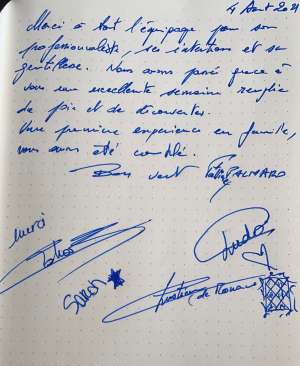 4 Août 2021
Merci à tout l'équipage pour son
professionnalisme, ses intentions et sa
gentillesse. Nous avons passé grâce à
vous une excellente semaine remplie
de joie et de découvertes.
Une première expérience en famille,
nous avons été comblé.
Bon vent
merci
Sarah
de